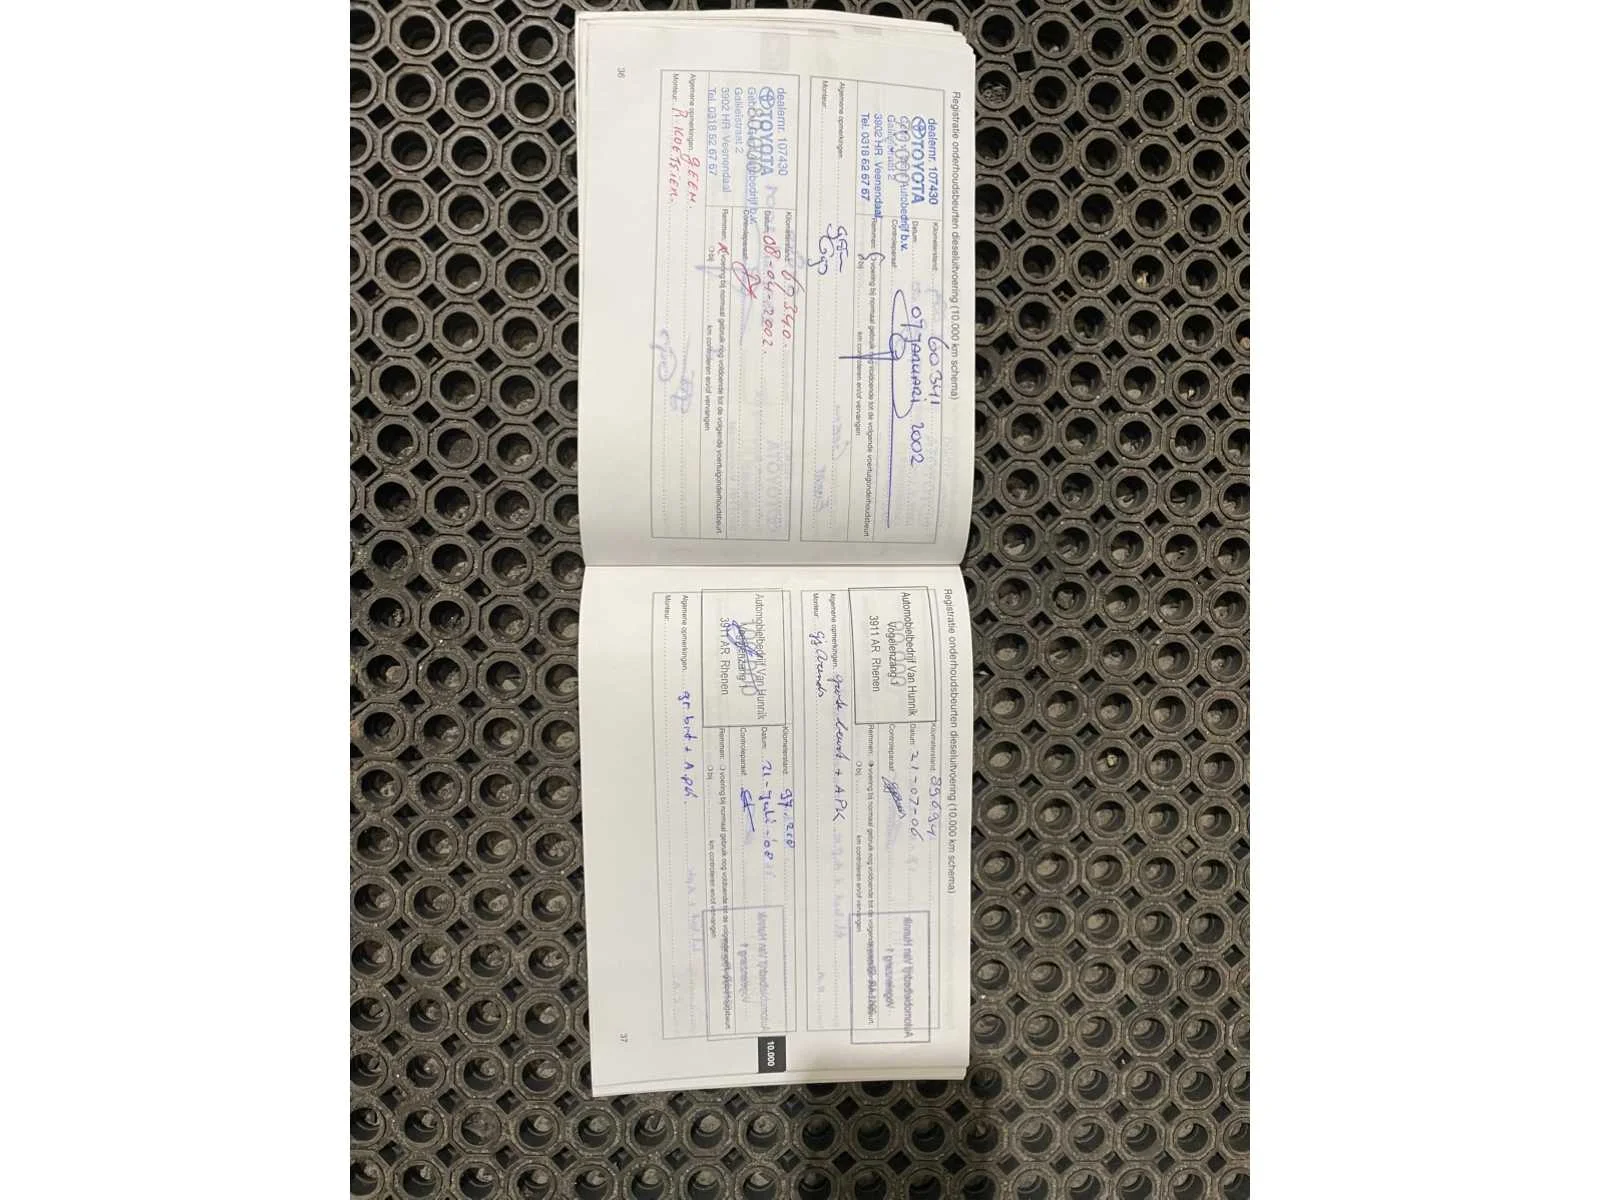 Registratie onderhoudsbeurten dieseluitvoering (10.000 km schema)
dealernr. 107430
TOYOTA
Autobedrijf b.v.
Galileïstraat 2
3902 HR Veenendaal
Tel. 0318 52 67 67
Kilometerstand: 60341
Datum: 07 JANUARI 2002
Controleparaaf:
Remmen: voering bij normaal gebruik nog voldoende tot de volgende voertuigonderhoudsbeurt
bij km controleren en/of vervangen
Algemene opmerkingen: geen
Monteur:
dealernr. 107430
TOYOTA
80.000
Galileïstraat 2
3902 HR Veenendaal
Tel. 0318 52 67 67
Kilometerstand:
Datum: 08-04-2002.
Controleparaaf:
Remmen: voering bij normaal gebruik nog voldoende tot de volgende voertuigonderhoudsbeurt
bij km controleren en/of vervangen
Algemene opmerkingen: GEEN
Monteur: R. KOETSIER.
36
Registratie onderhoudsbeurten dieseluitvoering (10.000 km schema)
90.000
Automobielbedrijf Van Hunnik
Vogelenzang 1
3911 AR Rhenen
Kilometerstand: 89694
Datum: 21-07-06
Controleparaaf:
Remmen: voering bij normaal gebruik nog voldoende tot de volgende
bij km controleren en/of vervangen
Algemene opmerkingen: grote beurt + APK
Monteur:
100.000
Automobielbedrijf Van Hunnik
Vogelenzang 1
3911 AR Rhenen
Kilometerstand: 97.218
Datum: 21-Juli-'08
Controleparaaf:
Remmen: voering bij normaal gebruik nog voldoende tot de volgende
bij km controleren en/of vervangen
Algemene opmerkingen: gr. brt + Apk.
Monteur:
10.000
37